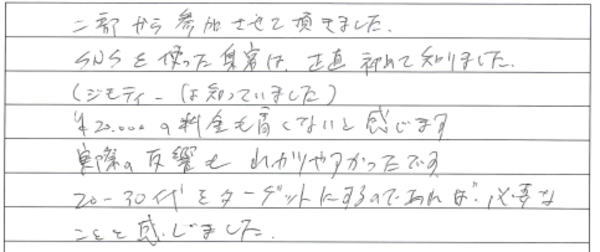 二部から参加させて頂きました.
SNSを使った集客は、正直初めて知りました.
(ジモティーは知っていました)
¥20.000の料金も高くないと感じます
実際の反響もわかりやすかったです
20-30代をターゲットにするのであれば、必要な
ことと感じました.